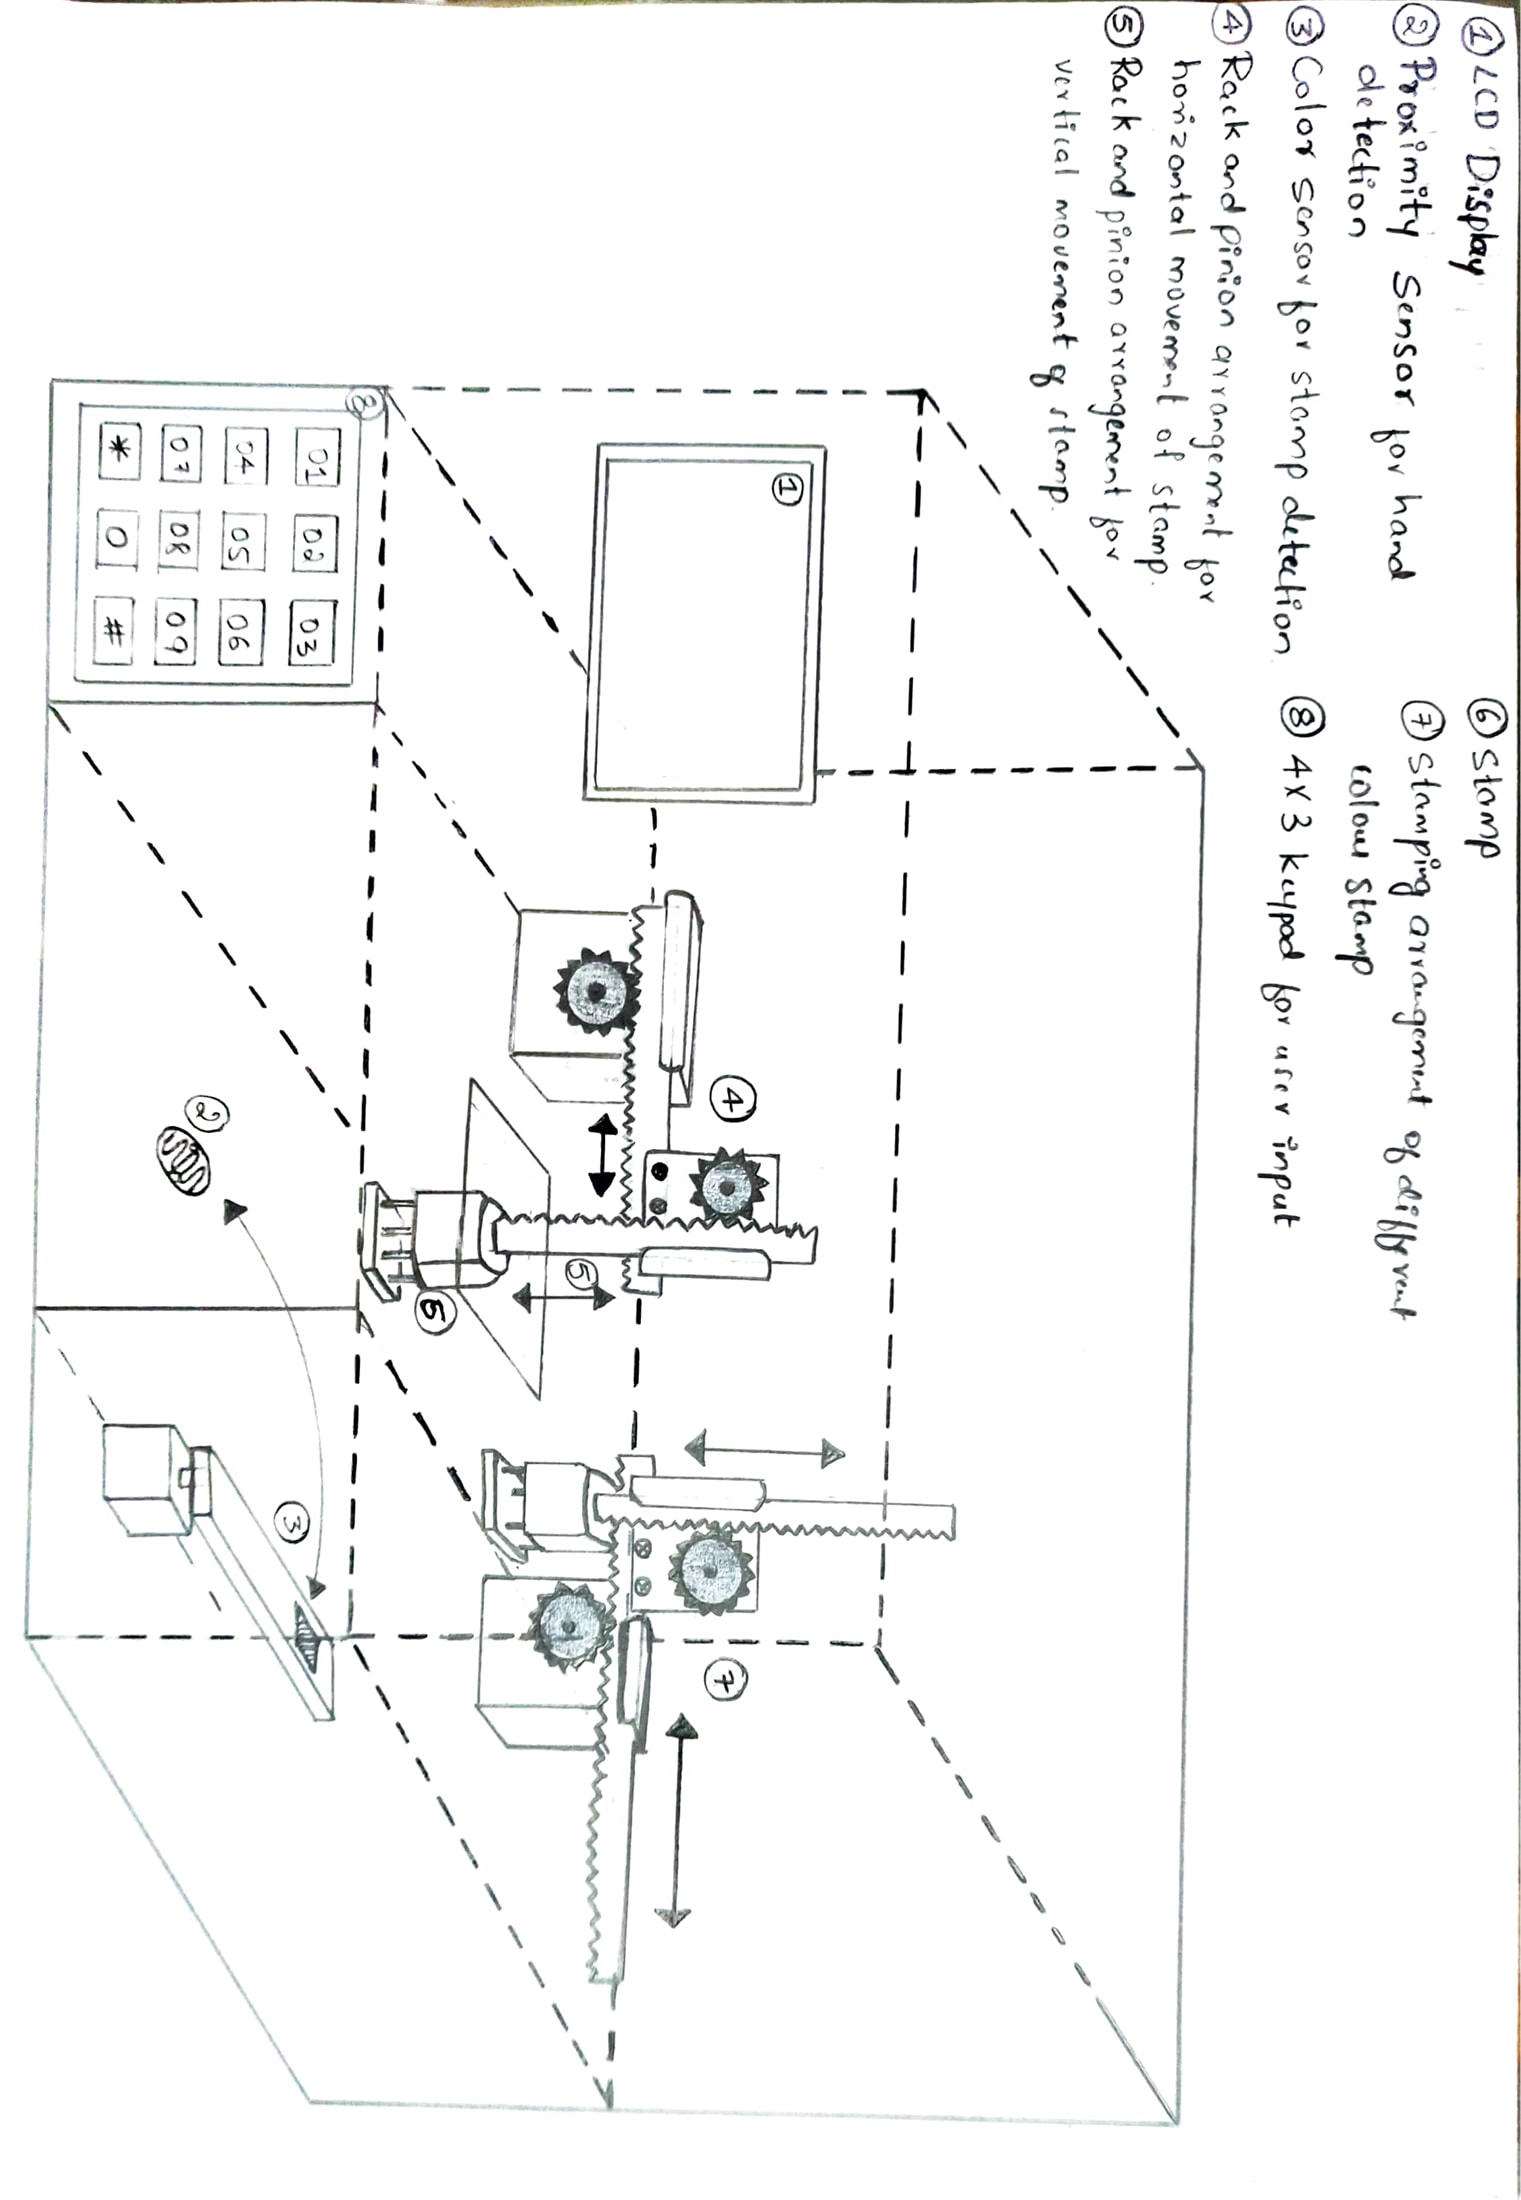 ① LCD Display
② Proximity Sensor for hand
detection
③ Color sensor for stamp detection
④ Rack and pinion arrangement for
horizontal movement of stamp.
⑤ Rack and pinion arrangement for
vertical movement of stamp.
⑥ Stamp
⑦ Stamping arrangement of different
colour stamp
⑧ 4x3 keypad for user input
①
④
⑦
⑤
⑤
⑧
01 02 03
04 05 06
07 08 09
* 0 #
②
③